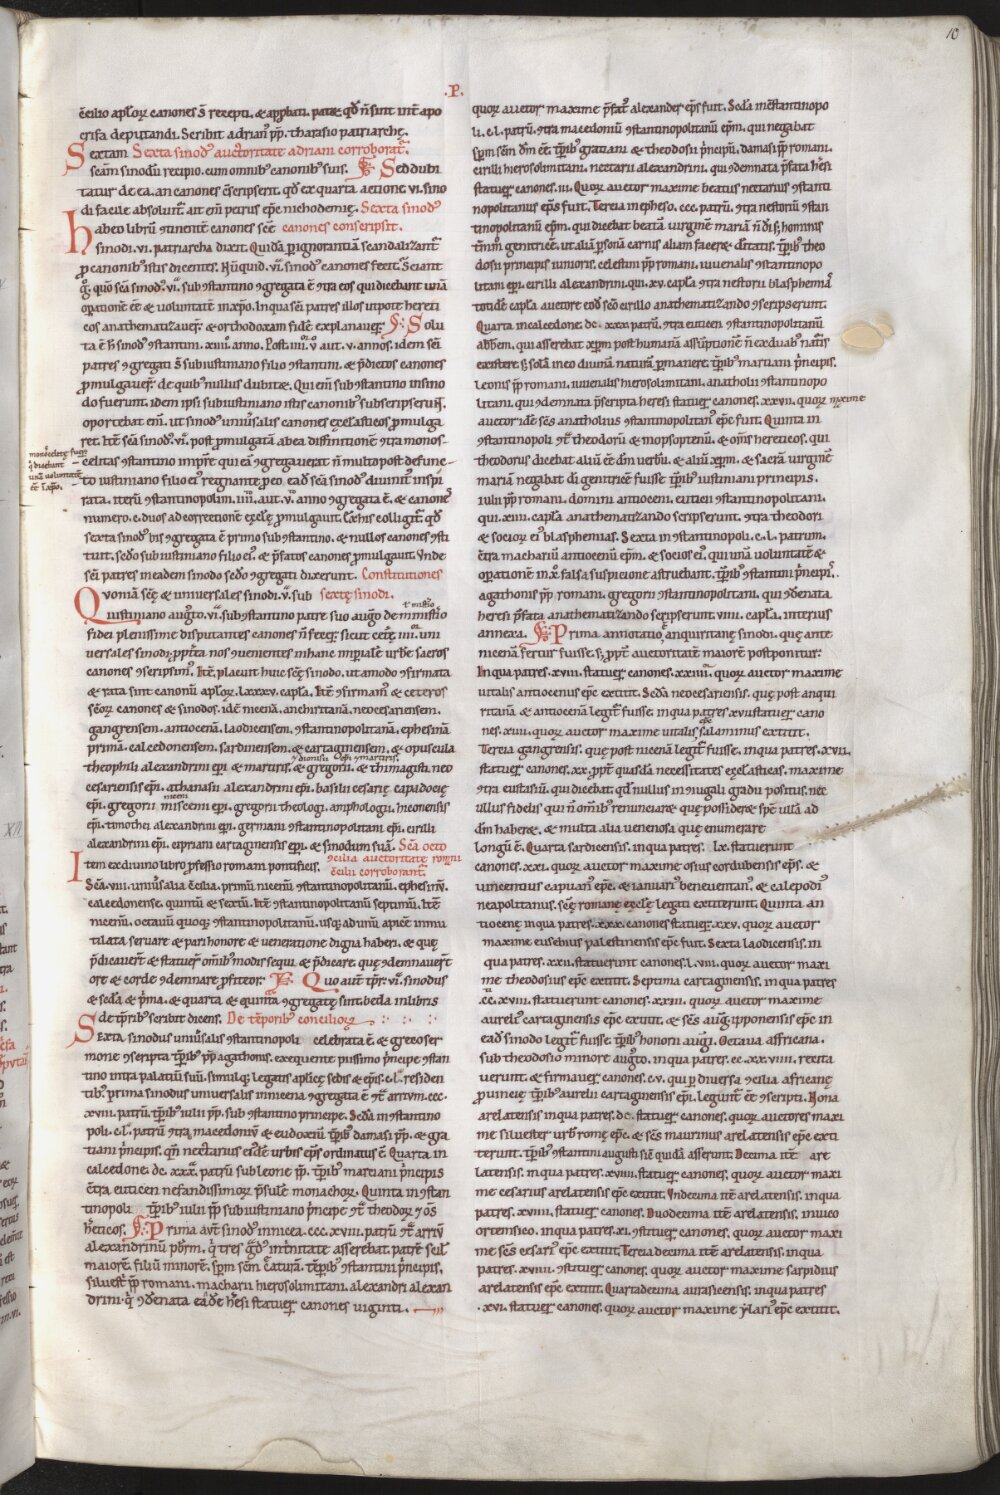 10
.P.
c̄cilio apl'oꝝ canones s̄ recepti. & app̄bati. patꝫ qd̓ n̄ sint int̓ apo
crifa deputandi. Scribit adrian᷒ pp̄. tharasio patriarchę.
Sextam Sexta sinod᷒ auctoritate adriani corroborat᷑.
scām sinodū recipio. cum omnib᷒ canonib᷒ suis. Sed dubi
tatur de ea. an canones c̄scripserit. qd̓ ex quarta actione .vi. sino
di facile absoluit᷑. ait em̄ petrus ep̄c nichodemię. Sexta sinod᷒
habeo librū ꝯtinentē canones scē canones conscripsit.
sinodi. vi. patriarcha dixit. Quidā p̱ ignorantiā scandalizant᷑
ꝓ canonib᷒ istis dicentes. Nūquid. vi. sinod᷒ canones fecit. Sciant
g̊. quō scā sinod᷒. vi. sub ꝯstantino ꝯgregata ē ꝯtra eos qui dicebant unā
op̱ationē ēē & voluntatē in xp̄o. In qua scī patres illos utpote hereti
cos anathematizauer̄. & orthodoxam fidē explanauer̄. Solu
ta ē h̄ sinod᷒ ꝯstantini. xiiii. anno. Post. iiii. ū aut. v. annos. idem scī
patres ꝯgregati s̄ sub iustiniano filio ꝯstantini. & p̄dictos canones
ꝓmulgauer̄. de quib᷒ nullus dubitet. Qui em̄ sub ꝯstantino in sino
do fuerunt. idem ipsi sub iustiniano istis canonib᷒ subscripser̄.
oportebat em̄. ut sinod᷒ uniu᷒salis canones ecclasticos ꝓmulga
ret. Itē scā sinod᷒. vi. post ꝓmulgatā ab ea diffinitionē ꝯtra monos
celitas ꝯstantino imp̄re qui eā ꝯgregauerat n̄ multo post defunc
to iustiniano filio ei᷒ regnante ꝓ eo. ead̄ scā sinod᷒ diuinit᷒ inspi
rata. iterū ꝯstantinopolim. iiii. aut. v. anno ꝯgregata ē. & canones
numero. c. duos ad correctionē ecclę ꝓmulgauit. Ex his colligit᷑ qd̓
sexta sinod᷒ bis ꝯgregata ē primo sub ꝯstantino. & nullos canones ꝯsti
tuit. sedo sub iustiniano filio ei᷒. & p̄fatos canones ꝓmulgauit. Unde
scī patres in eadem sinodo sedo ꝯgregati dixerunt. Constitutiones
Quoniā scę & universales sinodi. v. sub sextę sinodi.
iustiniano augto. vi. sub ꝯstantino patre suo augto de ministerio
fidei plenissime disputantes canones n̄ fecer̄. sicut cetę iiii. uni
versales sinodi. ppt̓ta nos ꝯuenientes in hanc imp̱iale urbē sacros
canones ꝯscripsim᷒. Itē placuit huic scę sinodo. ut amodo ꝯfirmata
& rata sint canonū apl'oꝝ. lxxxv. capla. Itē ꝯfirmam᷒ & ceteros
sc̄oꝝ canones & sinodos. idē nicenā. anchiritanā. neocesariensem.
gangrensem. antiocenā. laodicensem. ꝯstantinopolitanā. ephesinā
primā. calcedonensem. sardinensem. & cartaginensem. & opuscula
theophili alexandrini ep̄i. & martiris. & gregorii. & thimagisti. neo
cesariensis ep̄i. athanasii alexandrini ep̄i. basilii cesarię capadocię
ep̄i. gregorii misceni ep̄i. gregorii theologi. amphologii. hiconensis
ep̄i. timothei alexandrini ep̄i. germani ꝯstantinopolitani ep̄i. cirilli
alexandrini ep̄i. cipriani cartaginensis ep̄i. & sinodum suā. Scā octo
Item ex diurno libro ꝓfessio romani pontificis. ꝯcilia auctoritate romni
c̄cilii corroborant᷑.
Scā. viii. uniu᷒salia c̄cilia. primū nicenū. ꝯstantinopolitanū. ephesinū.
calcedonense. quintū & sextū. Itē ꝯstantinopolitanū septimū. Itē
nicenū. octauū quoqꝫ ꝯstantinopolitanū. usqꝫ ad unū apicē inmu
tilata seruare. & pari honore & ueneratione digna haberi. & quę
p̄dicauer̄t & statuer̄t om̄ibꝫ modis sequi & p̄dicare. quę ꝯdemnauer̄t
ore & corde ꝯdemnare ꝓfiteor. Quo aut̄ tp̄r. vi. sinodus
& seda. & p̄ma. & quarta & quinta ꝯgregatę sint. beda in libris
de tp̄rib᷒ scribit dicens. De tēporib᷒ concilioꝝ
Sexta sinodus uniu᷒salis ꝯstantinopoli celebrata ē. & greco ser
mone ꝯscripta tp̄rib᷒ pp̄ agathonis. exequente piissimo p̄ncipe ꝯstan
tino intra palatiū suū. simulqꝫ legatis aplicę sedis & ep̄is. c.l. residen
tib᷒. prima sinodus universalis in nicena ꝯgregata ē ꝯt̄ arrium. ccc.
xviii. patrū. tp̄rib᷒ iulii pp̄. sub ꝯstantino principe. Seda in ꝯstantino
poli. c.l. patrū ꝯtra macedoniū & eudoxiū tp̄rib᷒ damasi pp̄. & gra
tiani p̄ncipis. qn̄ nectarius eidē urbis ep̄s ordinatus ē. Quarta in
calcedone. dc. xxx. patrū sub leone pp̄. tp̄rib᷒ marciani p̄ncipis
c̄tra euticen nefandissimoꝝ p̄sulē monachoꝝ. Quinta in ꝯstan
tinopoli tp̄rib᷒ iulii pp̄ sub iustiniano p̄ncipe ꝯt̄ theodoꝝ & os̄
h̓eticos. Prima aut̄ sinod᷒ in nicea. ccc. xviii. patrū ꝯt̄ arriū
alexandrinū p̄brm. q̓ tres g̓d᷒ in t̓nitate asserebat. patrē sul̄
maiorē. filiū minorē. sp̄m scm̄ c̄aturā. tēp̱ib᷒ ꝯstantini p̄ncipis.
siluest̓ pp̄ romani. macharii hierosolimitani. alexandri alexan
drini. q̓ ꝯdēnata eadē h̓esi statuer̄ canones viginti.
monoscelitę fuer̄
q̓ dicebant
unā voluntatē
ēē i xp̄o.
quoꝝ auctor maxime p̄fat᷒ alexander ep̄s fuit. Seda in ꝯstantinopo
li. c.l. patrū. ꝯtra macedoniū ꝯstantinopolitanū ep̄m. qui negabat
sp̄m scm̄ dm̄ ēē. tp̄rib᷒ gratiani & theodosii p̄ncipū. damasi pp̄ romani.
cirilli hierosolimitani. nectarii alexandrini. qui ꝯdemnata p̄fata h̓esi
statuer̄ canones. iii. Quoꝝ auctor maxime beatus nectarius ꝯstanti
nopolitanus ep̄s fuit. Tercia in epheso. ccc. patrū. ꝯtra nestoriū ꝯstan
tinopolitanū ep̄m. qui dicebat beatā uirginē mariā n̄ di. s; hominis
tm̄m᷒ genitricē. ut aliā p̱sonā carnis aliam facer̄ & ditatis. tp̄rib᷒ theo
dosii principis iunioris. celestini pp̄ romani. iuuenalis ꝯstantinopo
litani ep̄i. cirilli alexandrini. qui. xv. capla ꝯtra nestorii blasphemiā
totidē capla auctore eod̄ scō cirillo anathematizando ꝯscripserunt.
Quarta in calcedone. dc. xxx patrū. ꝯtra euticen ꝯstantinopolitanū
abb̄em. qui asserebat xp̄m post humanā assūptionē n̄ ex duab᷒ nat̓is
existere. s; solā in eo diuinā naturā p̱manere. tp̄rib᷒ martiani p̄ncipis.
leonis pp̄ romani. iuuenalis hierosolimitani. anatholii ꝯstantinopo
litani. qui ꝯdemnata p̄scripta heresi statuer̄ canones. xxvii. quoꝝ maxime
auctor idē scs̄ anatholius ꝯstantinopolitan᷒ ep̄c fuit. Quinta in
ꝯstantinopoli ꝯt̄ theodorū & mopsoptenū. & om̄s hereticos. qui
theodorus dicebat aliū ēē dm̄ verbū. & aliū xp̄m. & sacrā uirginē
mariā negabat di genitricē fuisse. tp̄rib᷒ iustiniani principis.
iulii pp̄ romani. domini antioceni. euticii ꝯstantinopolitani.
qui. xiiii. capla anathematizando scripserunt. ꝯtra theodori
& socioꝝ ei᷒ blasphemias. Sexta in ꝯstantinopoli. c.l. patrum.
c̄tra machariū antiocenū ep̄m. & socios ei᷒. qui unā voluntatē &
op̱ationē in xo̅ falsa suspicione astruebant. tp̄rib᷒ ꝯstantini p̄ncipis.
agathonis pp̄ romani. gregorii ꝯstantinopolitani. qui ꝯdēnata
heresi p̄fata anathematizando scripserunt. viiii. capla. interius
annexa. Prima annotatio anquiritanę sinodi. quę ante
nicenā fertur fuisse. s; ppt̓ auctoritatē maiorē postponitur.
In qua patres. xviii. statuer̄ canones. xxiiii. quoꝝ auctor maxime
uitalis antiocenus ep̄c extitit. Seda neocesariensis. quę post anqui
ritanā & antiocenā legit᷑ fuisse. in qua patres xvii statuer̄ cano
nes. xiiii. quoꝝ auctor maxime vitalis salaminus extitit.
Tercia gangrensis. quę post nicenā legit᷑ fuisse. in qua patres. xvii.
statuer̄ canones. xx. ppt̓ quasdā necessitates ecclasticas. maxime
ꝯtra eustasiū. qui dicebat. qd̓ nullus in niugali gradu positus. nec
ullus fidelis qui n̄ om̄ib᷒ renunciaret quę possideret spē ullā ad
dm̄ haberet. & multa alia venenosa quę enumerare
longū ē. Quarta sardicensis. in qua patres. lx. statuerunt
canones. xxi. quoꝝ auctor maxime osius cordubensis ep̄s. &
vincentius capuan᷒ ep̄c. & ianuari᷒ beneuentan᷒. & calepodi᷒
neapolitanus. scę romanę ecclę legati extiterunt. Quinta an
tiocenę in qua patres. xxx. canones statuer̄. xxv. quoꝝ auctor
maxime eusebius palestinensis ep̄c fuit. Sexta laodicensis. in
qua patres. xxii. statuerunt canones. l. viiii. quoꝝ auctor maxi
me theodosius ep̄c extitit. Septima cartaginensis. in qua patres
cc. xviii. statuerunt canones. xxiii. quoꝝ auctor maxime
aureli᷒ cartaginensis ep̄c extitit. & scs̄ aug᷒. ipponensis ep̄c in
ead̄ sinodo legit᷑ fuisse. tp̄rib᷒ honorii augi. Octaua affricana.
sub theodosio minore augto. in qua patres. cc. xx. viiii. recita
uerunt. & firmauer̄ canones. c.v. qui p̱ diuersa ꝯcilia africanę
ꝓuincię tp̄rib᷒ aurelii cartaginensis ep̄i. legunt᷑ ēē ꝯscripti. Nona
arelatensis in qua patres. dc. statuer̄ canones. quoꝝ auctores maxi
me siluester urb᷒ romę ep̄c. & scs̄ maurinus arelatensis ep̄c exti
terunt. tp̄rib᷒ ꝯstantini augusti sic̄ quidā asserunt. Decima itē are
latensis. in qua patres. xviii. statuer̄ canones. quoꝝ auctor maxi
me cesarius arelatensis ep̄c extitit. Undecima itē arelatensis. in qua
patres. xviii. statuer̄ canones. Duodecima itē arelatensis. in iuico
ortensico. in qua patres. xi. ꝯstituer̄ canones. quoꝝ auctor maxi
me scs̄ cesari᷒ ep̄c extitit. Tercia decima itē arelatensis. in qua
patres. xviii. ꝯstituer̄ canones. quoꝝ auctor maxime sarpidius
arelatensis ep̄c extitit. Quartadecima aurasicensis. in qua patres
.xvi. statuer̄ canones. quoꝝ auctor maxime ylari᷒ ep̄c extitit.